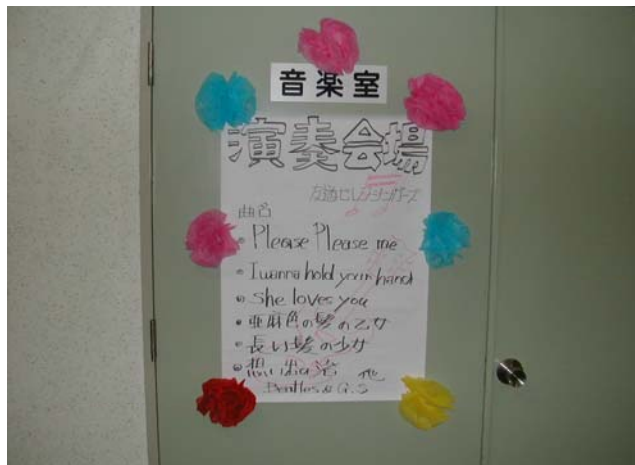 音楽室
演奏会場
曲名
• Please Please me
• I wanna hold your hand
• She loves you
• 亜麻色の髪の乙女
• 長い髪の少女
• 想い出の渚 他
Beatles & G.S